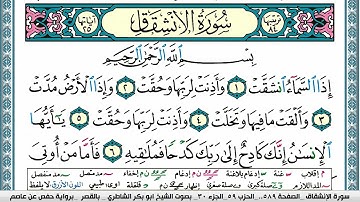 سُورَةُ الانشِقَاقِ
بِسْمِ اللَّهِ الرَّحْمَٰنِ الرَّحِيمِ
إِذَا ٱلسَّمَآءُ ٱنشَقَّتْ ١ وَأَذِنَتْ لِرَبِّهَا وَحُقَّتْ ٢ وَإِذَا ٱلْأَرْضُ مُدَّتْ
٣ وَأَلْقَتْ مَا فِيهَا وَتَخَلَّتْ ٤ وَأَذِنَتْ لِرَبِّهَا وَحُقَّتْ ٥ يَٰٓأَيُّهَا
ٱلْإِنسَٰنُ إِنَّكَ كَادِحٌ إِلَىٰ رَبِّكَ كَدْحًا فَمُلَٰقِيهِ ٦ فَأَمَّا مَنْ أُوتِىَ
سورة الإنشقاق، الصفحة ٥٨٩، الحزب ٥٩ الجزء ٣٠، بصوت الشيخ أبو بكر الشاطري، بالقصر، برواية حفص عن عاصم